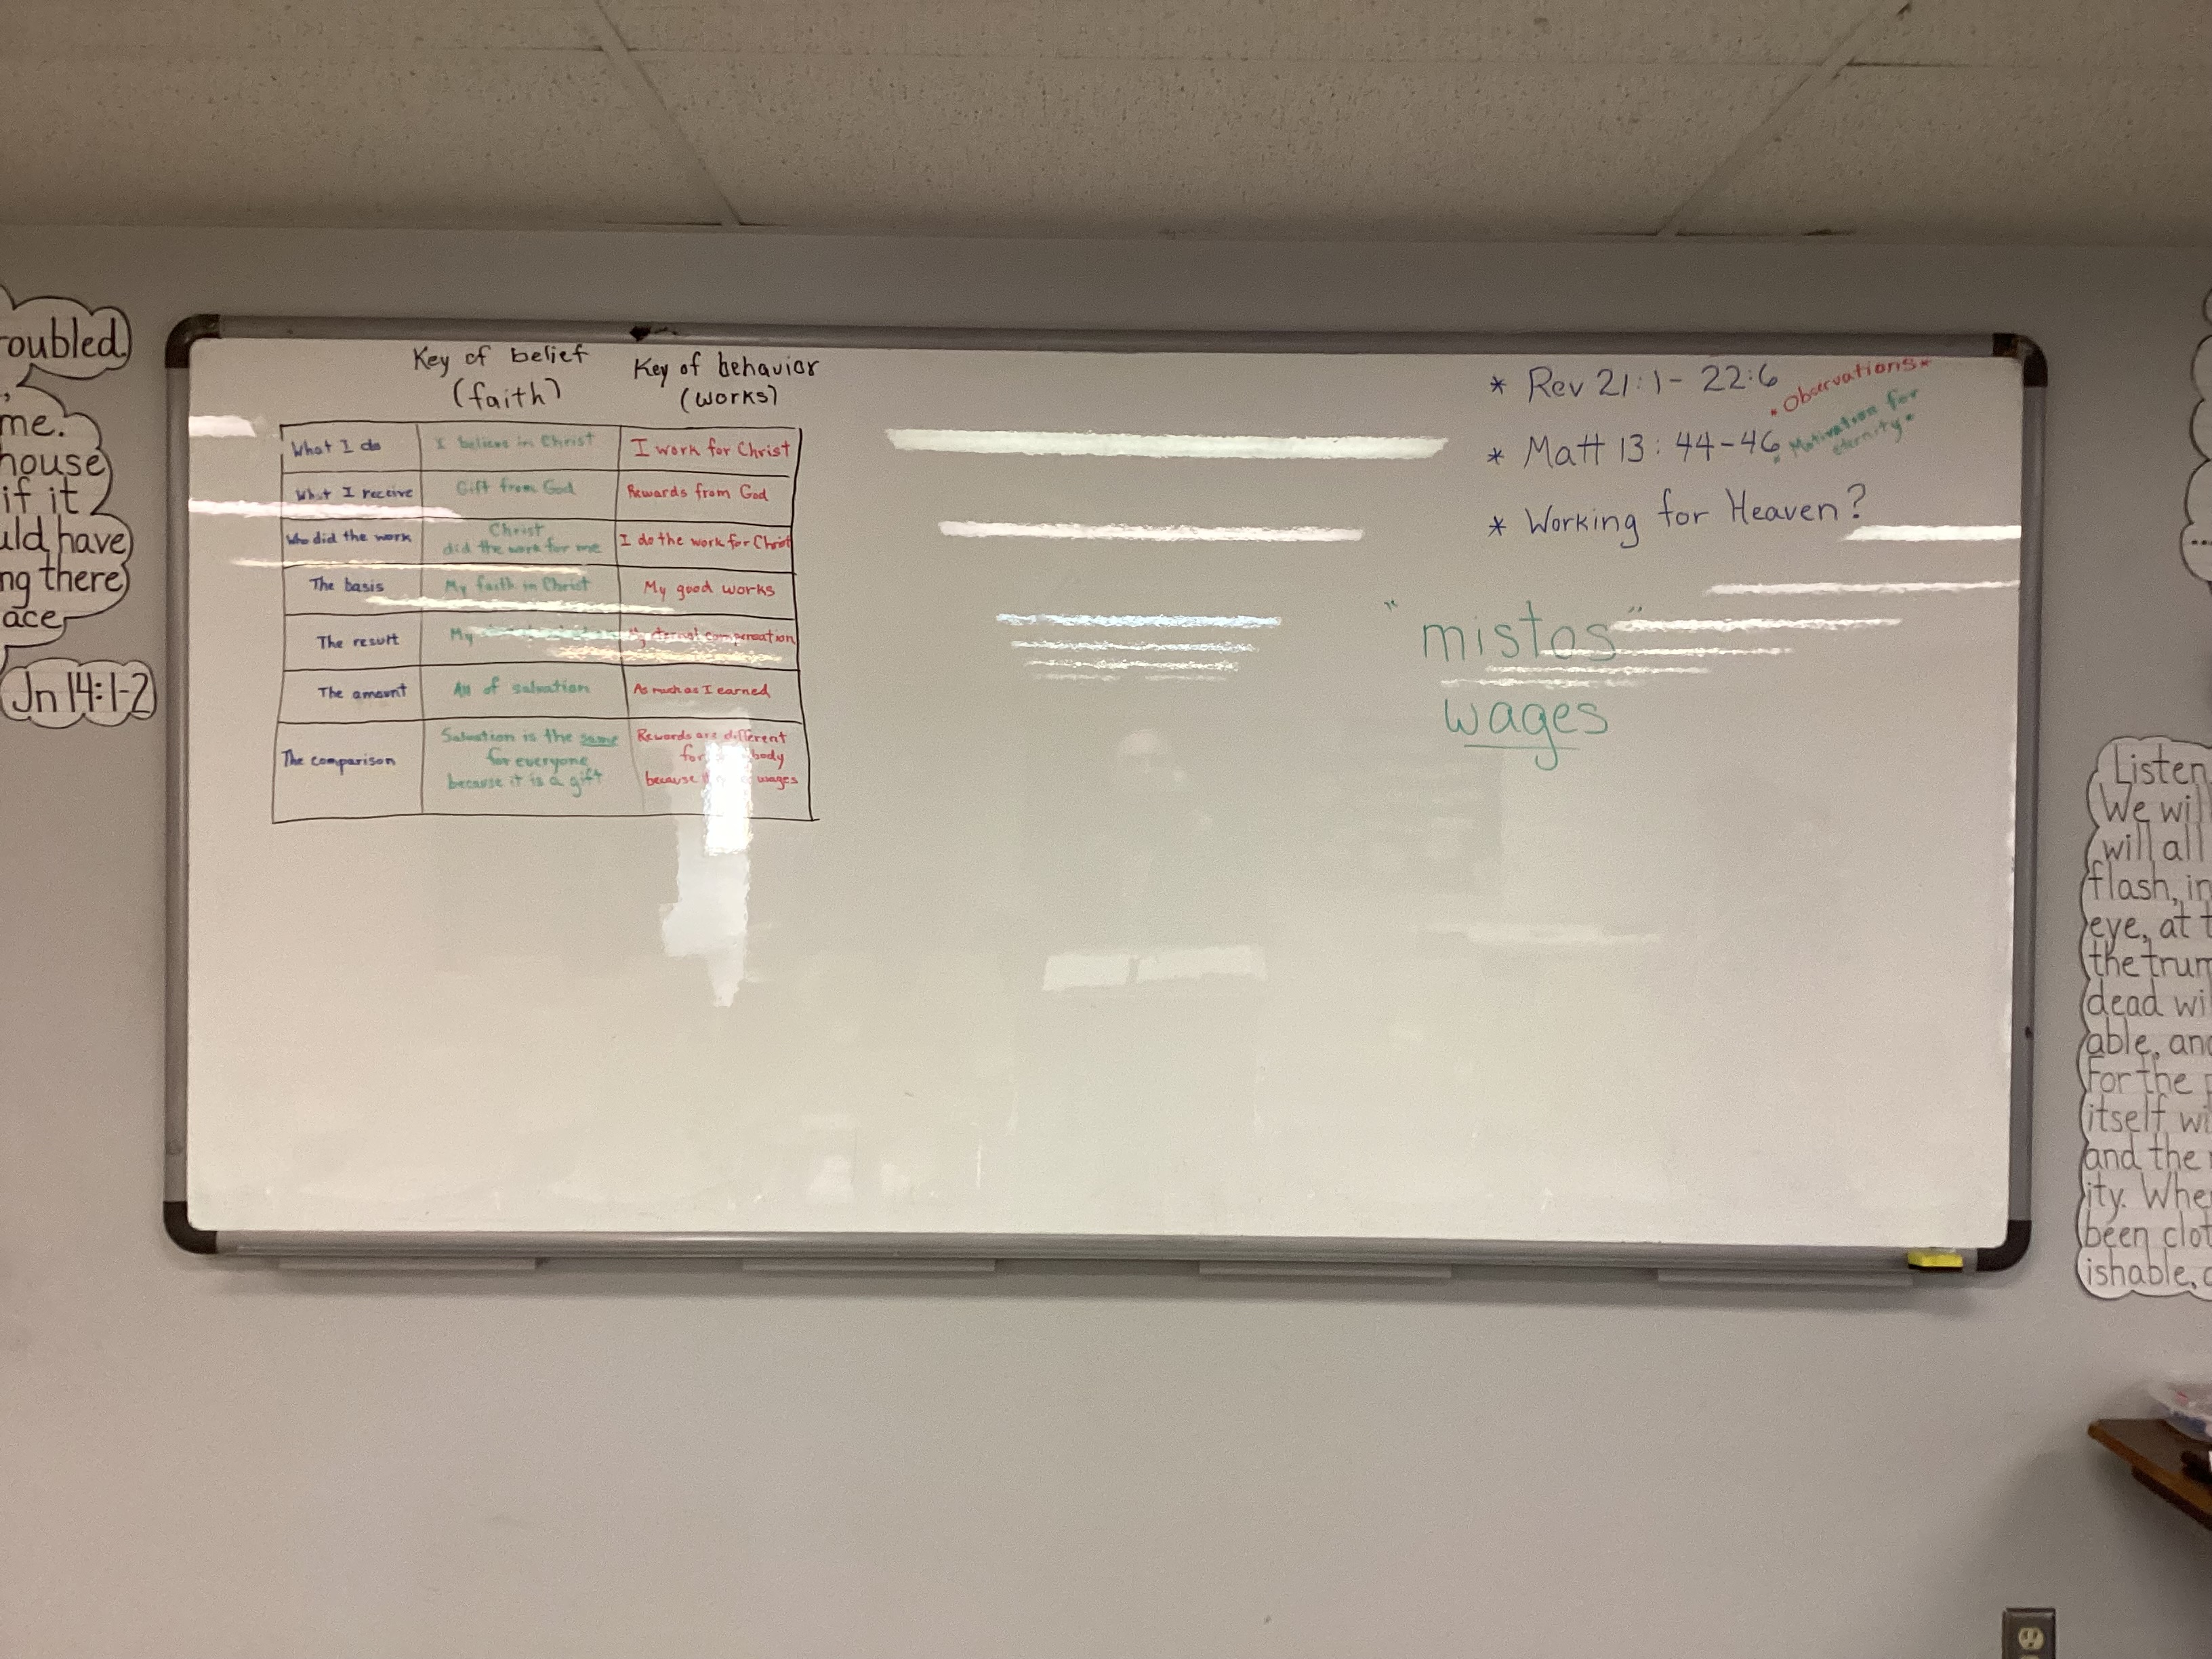 Key of belief
(faith)
Key of behavior
(works)
What I do
I believe in Christ
I work for Christ
What I receive
Gift from God
Rewards from God
Who did the work
Christ
did the work for me
I do the work for Christ
The basis
My faith in Christ
My good works
The result
My
My eternal compensation
The amount
All of salvation
As much as I earned
The comparison
Salvation is the same
for everyone
because it is a gift
Rewards are different
for body
because wages
* Rev 21:1 - 22:6
* Observations *
* Matt 13: 44-46
* Motivation for
eternity *
* Working for Heaven?
"mistos"
wages
oubled.
me.
house
if it
uld have
ng there
ace
Jn 14:1-2
...
Listen,
We wil
will all
flash, in
eye, at t
the trum
dead wi
able, and
For the p
itself wi
and the
ity. Whe
been clot
ishable,